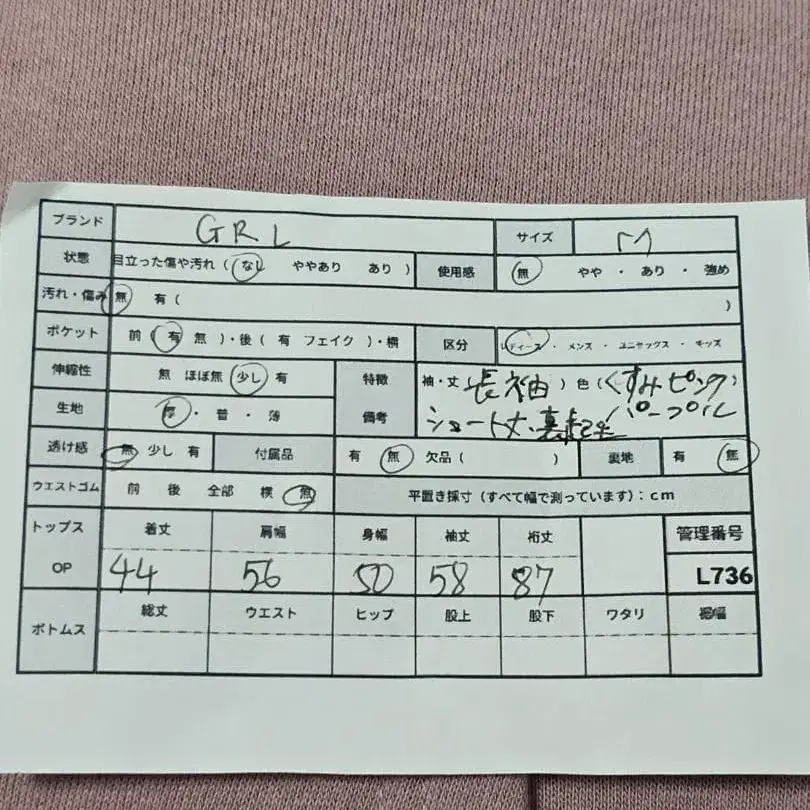 ブランド GRL サイズ M
状態 目立った傷や汚れ ( なし ややあり あり ) 使用感 無 やや ・ あり ・ 強め
汚れ・傷み 無 有 ( )
ポケット 前 ( 有 無 )・後 ( 有 フェイク )・横 区分 レディース ・ メンズ ・ ユニセックス ・ キッズ
伸縮性 無 ほぼ無 少し 有 特徴 袖・丈 長袖 ) 色 (くすみピンク)
生地 厚 ・ 普 ・ 薄 備考 ショート丈・裏起毛 パープル
透け感 無 少し 有 付属品 有 無 欠品 ( ) 裏地 有 無
ウエストゴム 前 後 全部 横 無 平置き採寸 (すべて幅で測っています) : cm
トップス 着丈 肩幅 身幅 袖丈 裄丈 管理番号
OP 44 56 50 58 87 L736
ボトムス 総丈 ウエスト ヒップ 股上 股下 ワタリ 裾幅